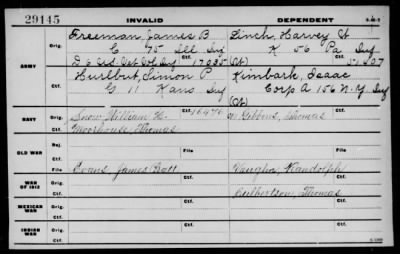 29145 INVALID DEPENDENT
ARMY
Orig. Freeman, James B Finch, Harvey Ct
C 75 Ill Inf K 50 Pa Inf
D 6 U.S. Vet Vol Inf 17035 (Ct)
Ctf. Hurlbut, Simon P Kimbark, Isaac
G 11 Kans Inf Corp A 156 N.Y. Inf
(Ct)
NAVY
Orig. Snow, William H. 16476 Gibbins, Thomas
Ctf. Moorhouse, Thomas
OLD WAR
Rej.
Ctf. File
File Evans, James Vaughn, Randolph
WAR OF 1812
Orig.
Ctf. Culbertson, Thomas
MEXICAN WAR
Orig.
Ctf.
INDIAN WAR
Orig. Ctf.
Ctf.